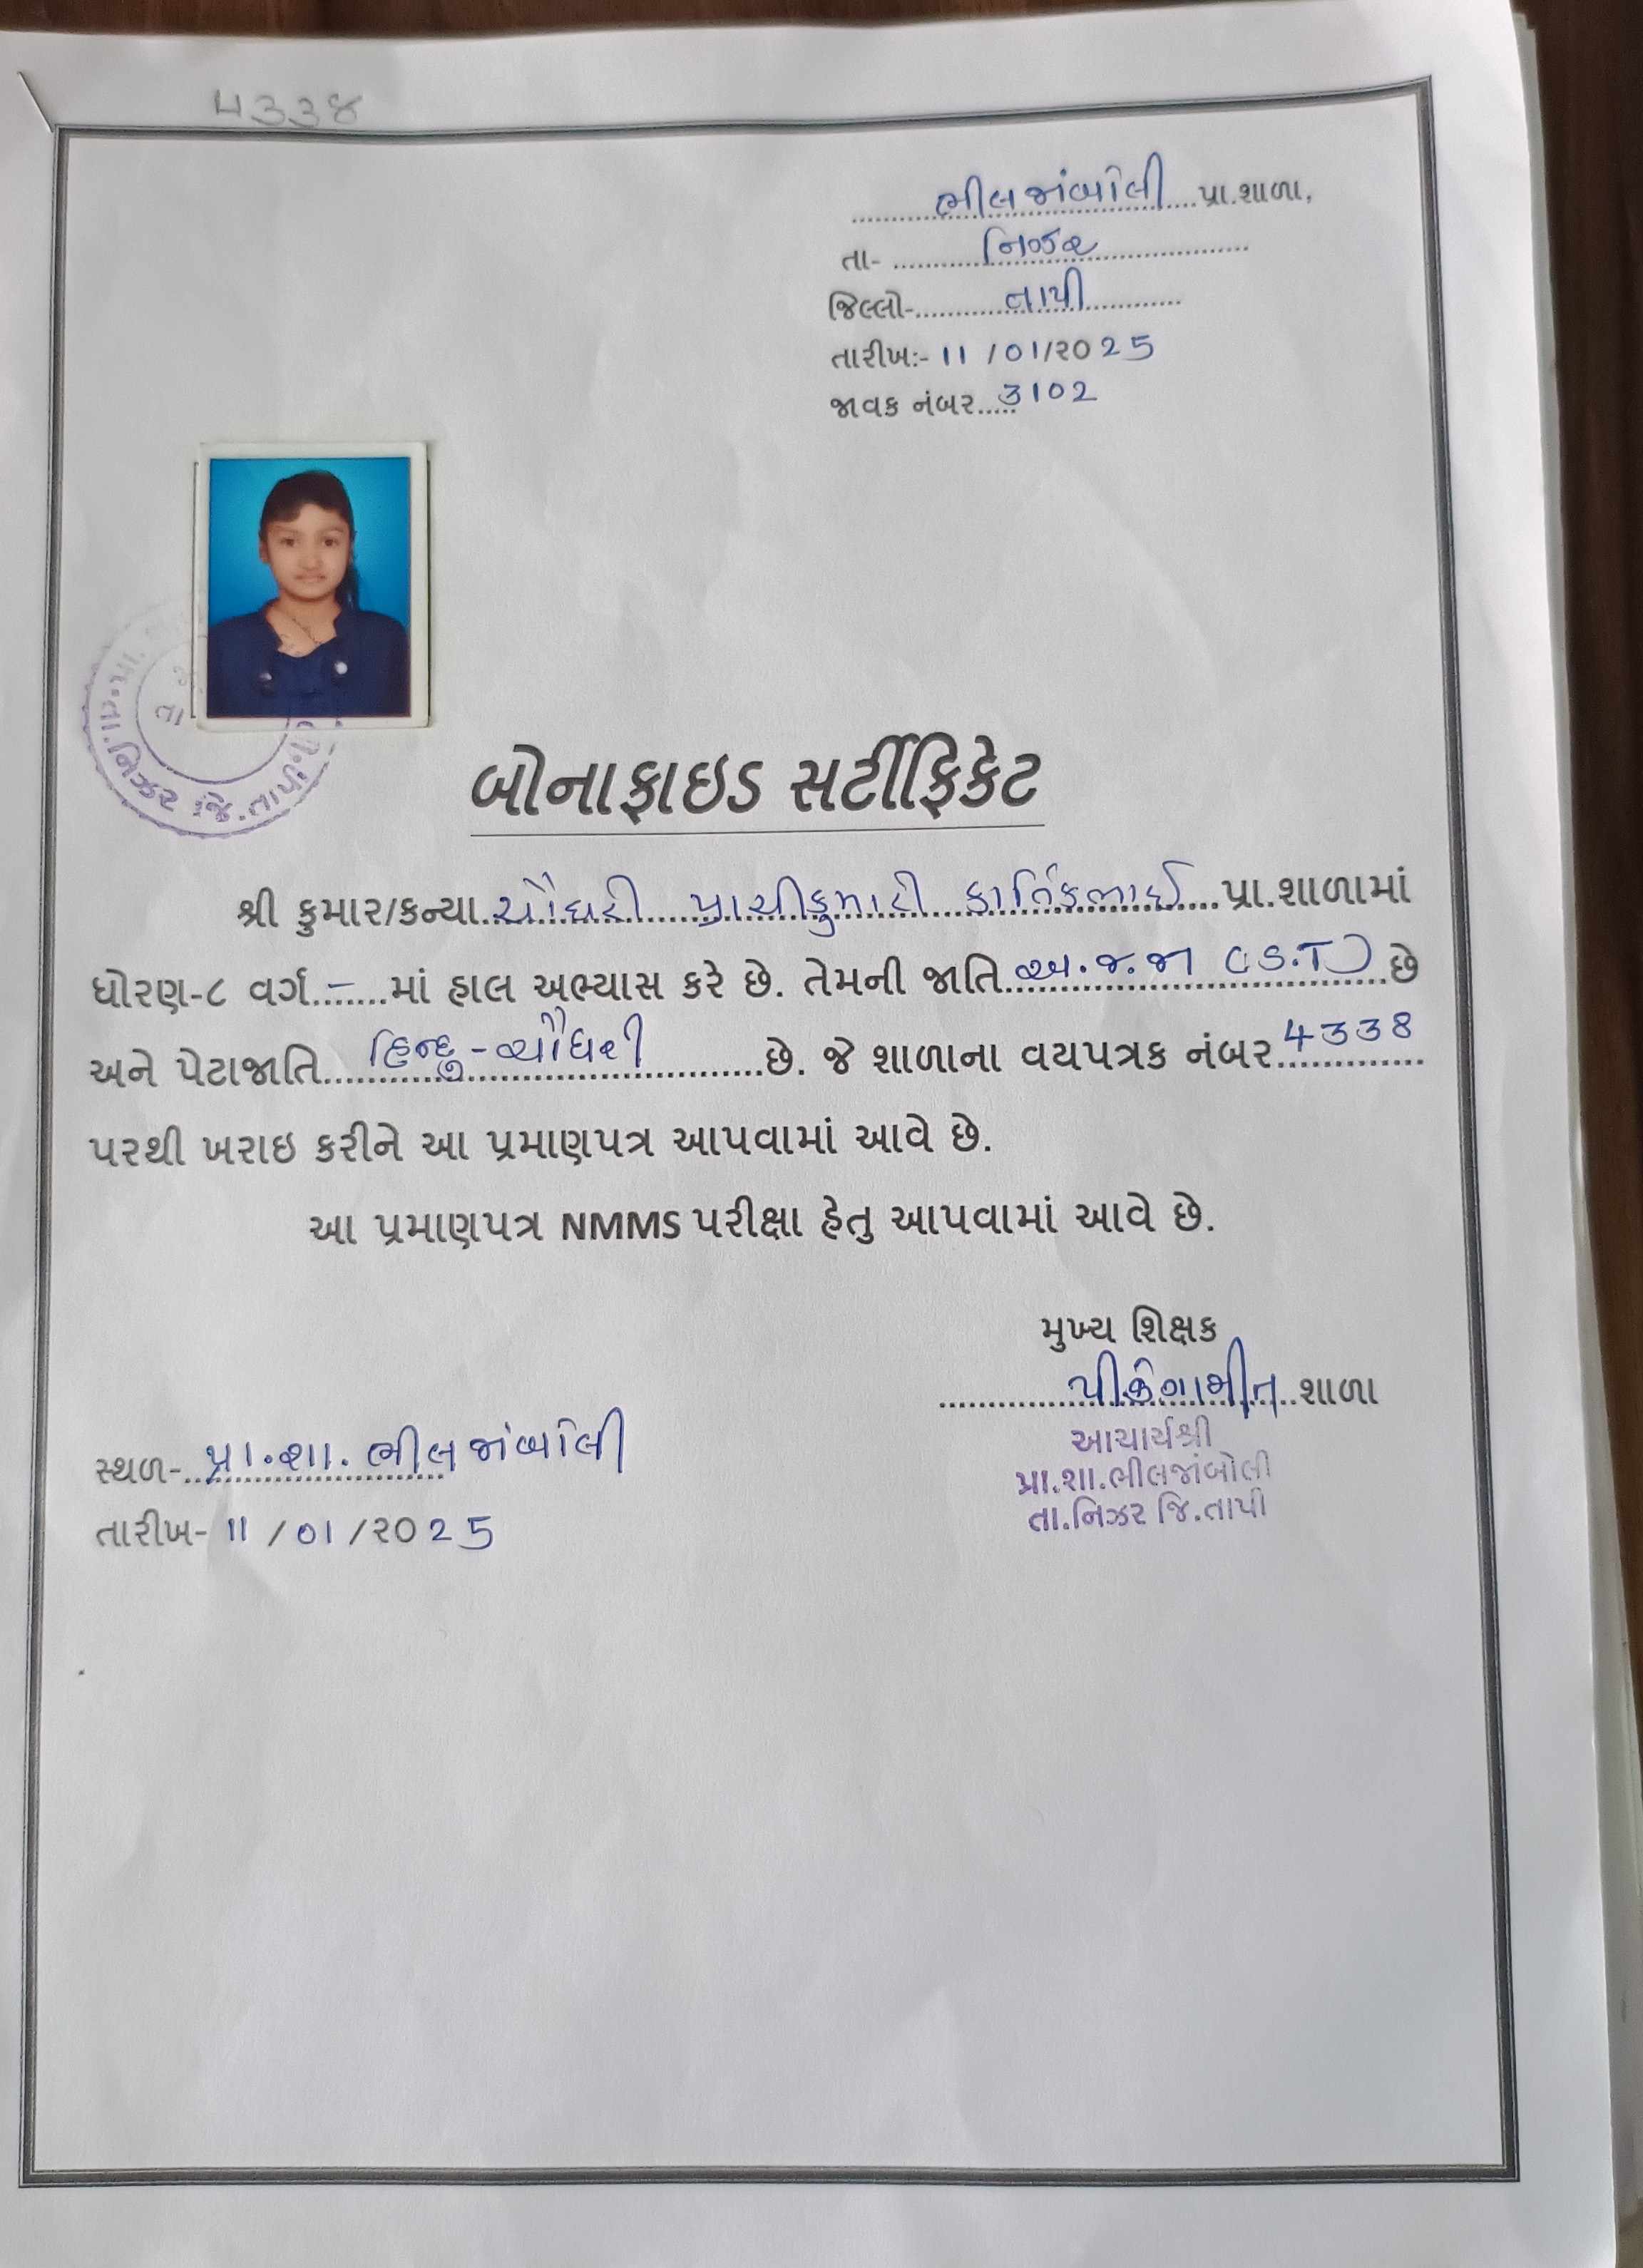 ૫૩૩૪
ભીલજાંબોલી પ્રા.શાળા,
તા- નિઝર
જિલ્લો- તાપી
તારીખ:- 11 /01/૨૦25
જાવક નંબર.....3102
તા.નિઝર જિ.તાપી
બોનાફાઇડ સર્ટીફિકેટ
શ્રી કુમાર/કન્યા ચૌધરી પ્રાચીકુમારી કાર્તિકભાઈ પ્રા.શાળામાં
ધોરણ-૮ વર્ગ...–....માં હાલ અભ્યાસ કરે છે. તેમની જાતિ અ.જ.જા (S.T) છે
અને પેટાજાતિ હિન્દુ - ચૌધરી છે. જે શાળાના વયપત્રક નંબર 4338
પરથી ખરાઇ કરીને આ પ્રમાણપત્ર આપવામાં આવે છે.
આ પ્રમાણપત્ર NMMS પરીક્ષા હેતુ આપવામાં આવે છે.
મુખ્ય શિક્ષક
શાળા
આચાર્યશ્રી
પ્રા.શા.ભીલજાંબોલી
તા.નિઝર જિ.તાપી
સ્થળ- પ્રા.શા. ભીલજાંબોલી
તારીખ- 11 / 01 / ૨૦25